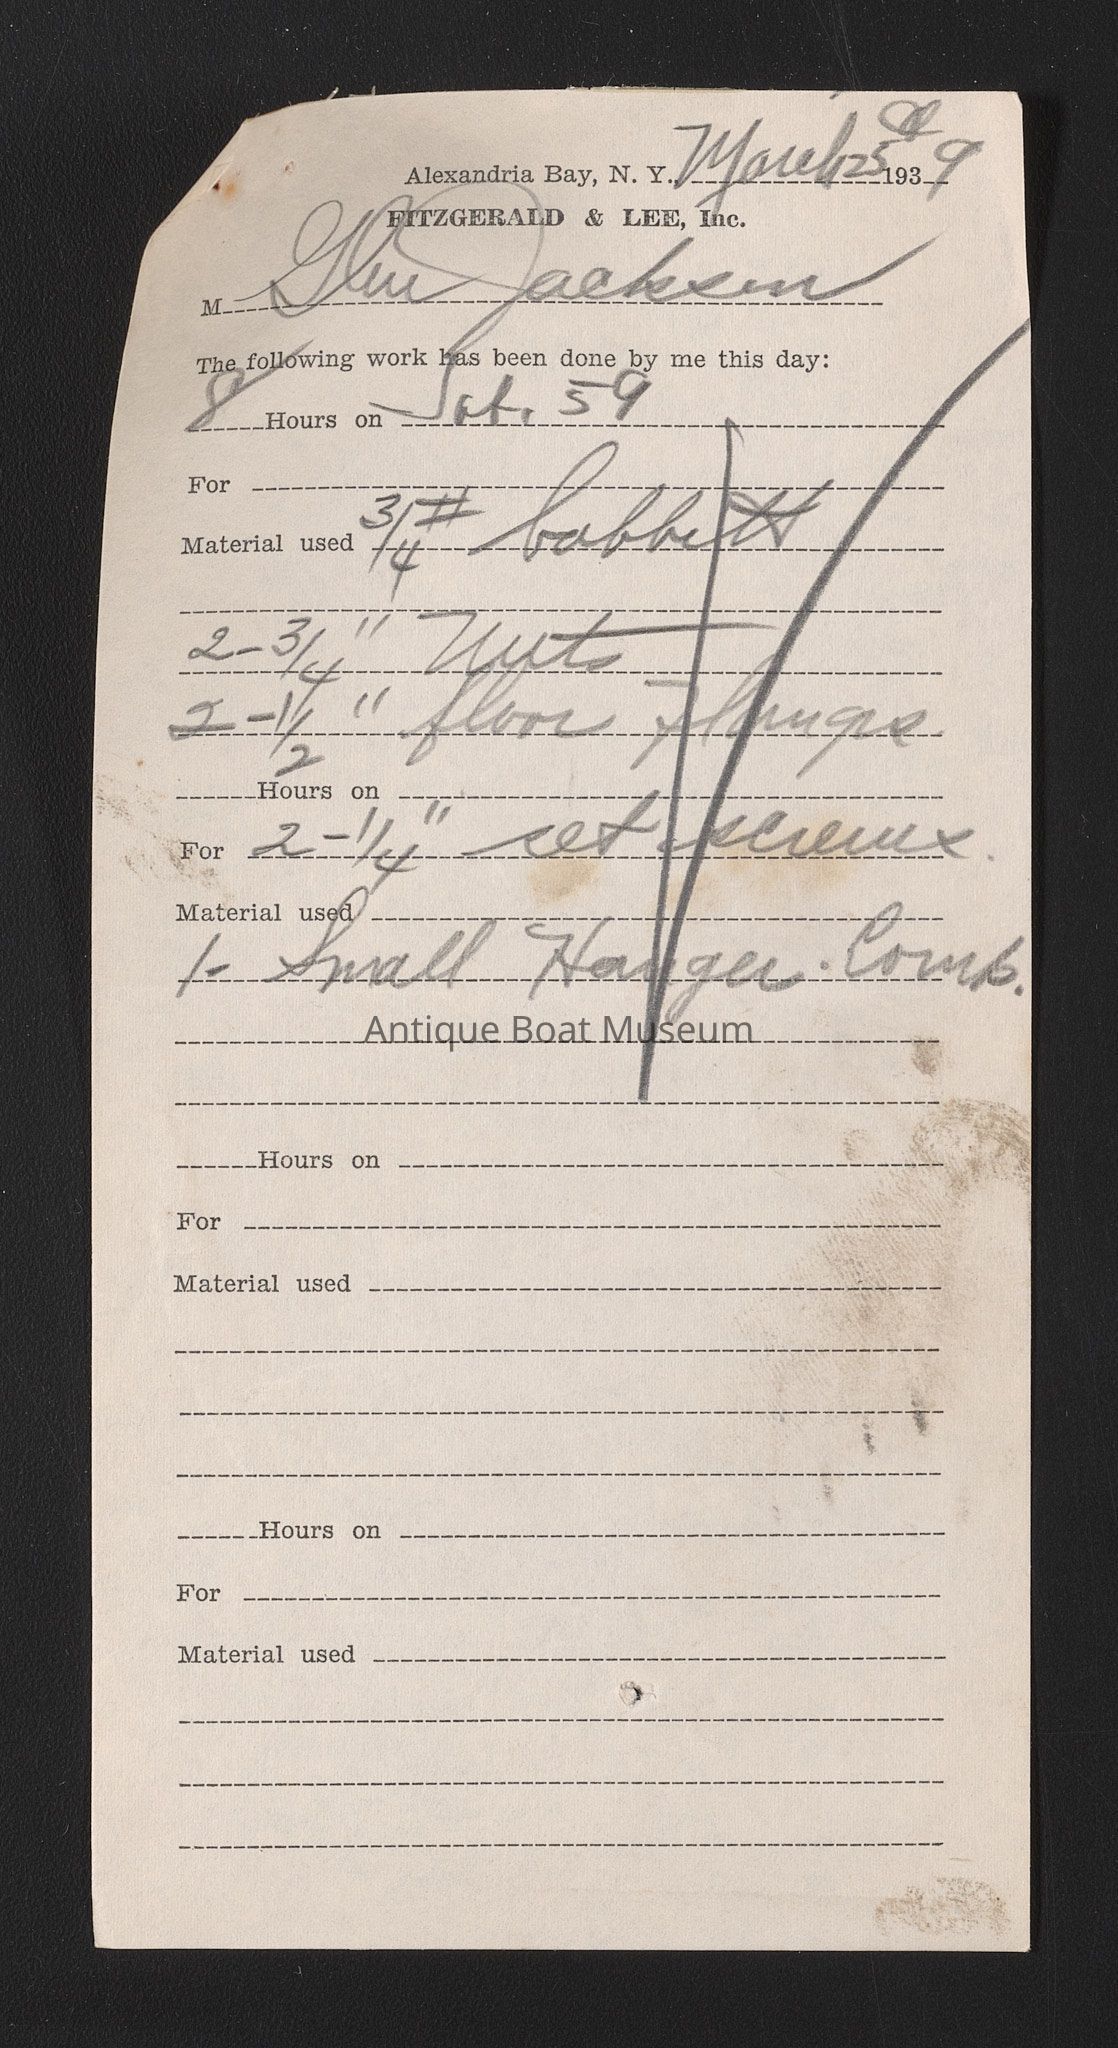 Alexandria Bay, N. Y. March 25 1939
FITZGERALD & LEE, Inc.
M Glen Jackson
The following work has been done by me this day:
8 Hours on Job. 59
For
Material used 3/4 # babbitt
2-3/4" Nuts
2-1/2" floor Flanges
Hours on
For 2-1/4" set screws.
Material used
1- Small Hanger. Comb.
Antique Boat Museum
Hours on
For
Material used
Hours on
For
Material used